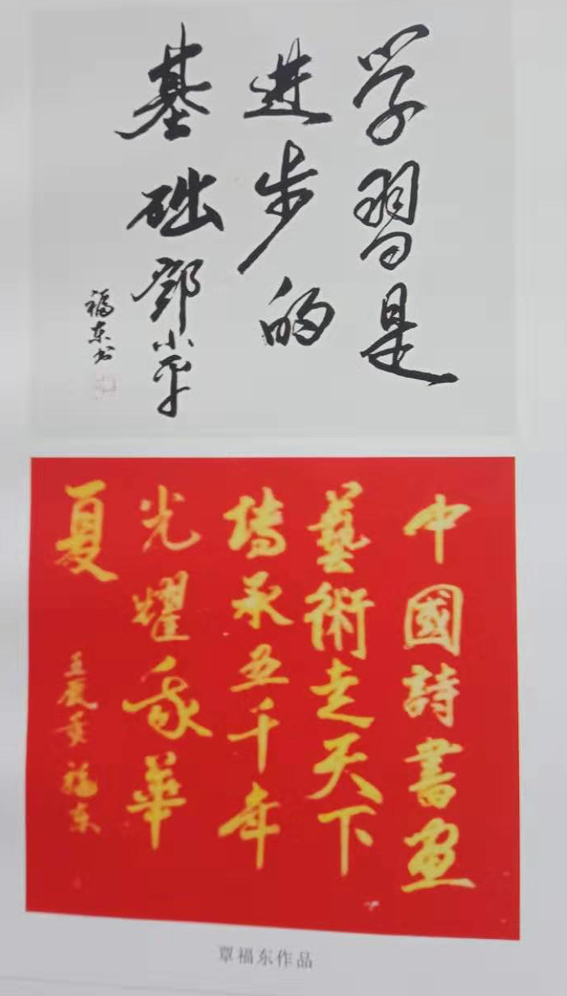 学習是
進步的
基础鄧小平
福东书
中國詩書画
藝術走天下
傳承五千年
光耀我華
夏
福东
覃福东作品